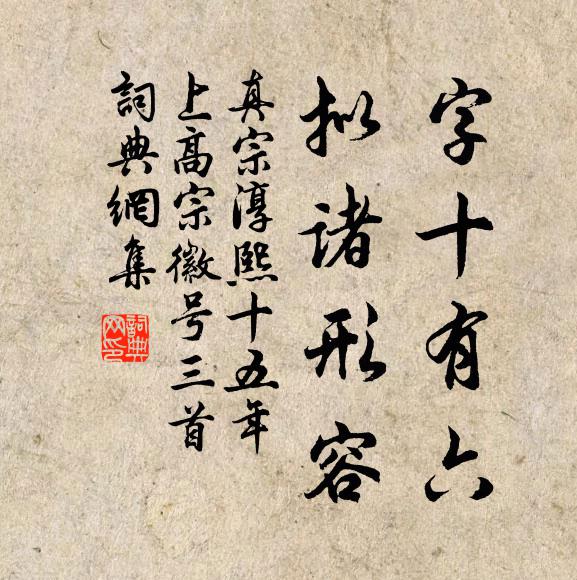 字十有六
拟诸形容
真宗淳熙十五年
上高宗徽号三首
词典網集
詞典网印